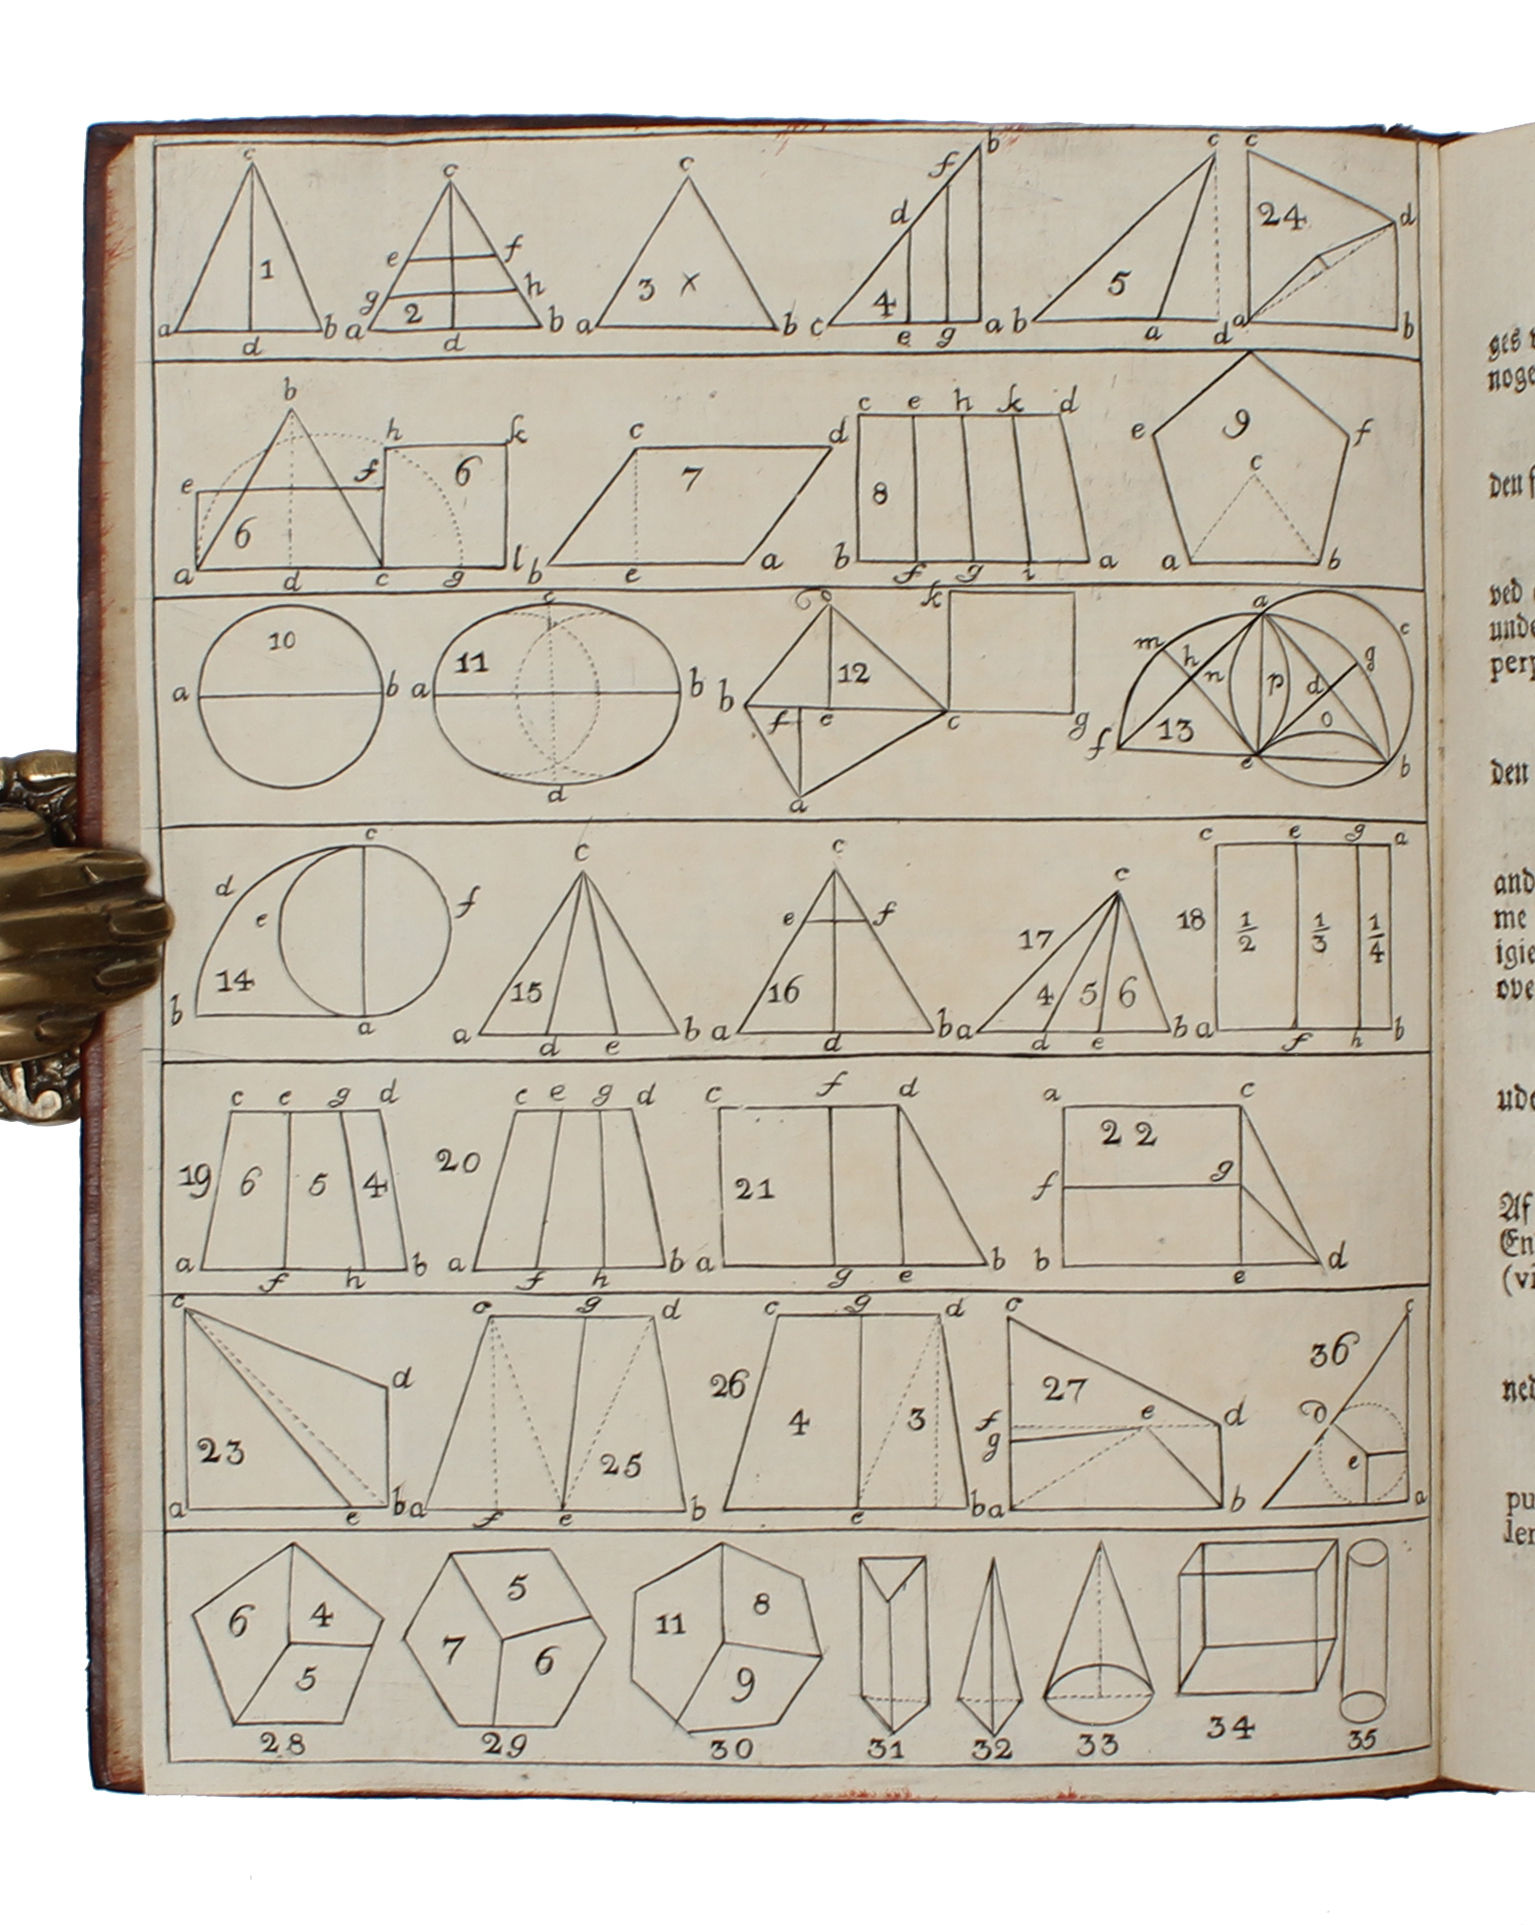 c c c b c c
f
d 24 d
e f
1 g h 3 x 4 5
2
a b a b a b c a b a b
d d e g a d
b c e h k d
h k c d e 9 f
f 6 7 c
e 8
6
a d c g l b e a b f g i a a b
c b k a c
10 11 12 m h g
a b a b b n p d
f e c g o
f 13 e b
d a
c c c c e g a
d e f c
e f 17 18 1/2 1/3 1/4
14 15 16 4 5 6
b a a b a b a b a b
d e d d e f h
c e g d c e g d c f d a c
19 6 5 4 20 21 22
f g
a b a b a b b d
f h f h g e e
c c g d c g d c c
d 26 27 36
4 3 f e d D
23 25 g e
a e b a f e b e b a b a
6 4 5 11 8
5 7 6 9
28 29 30 31 32 33 34 35
ges
noge
den f
ved
unde
perp
den
and
me
igie
ove
udo
Af
En
(vi
ned
pu
ler